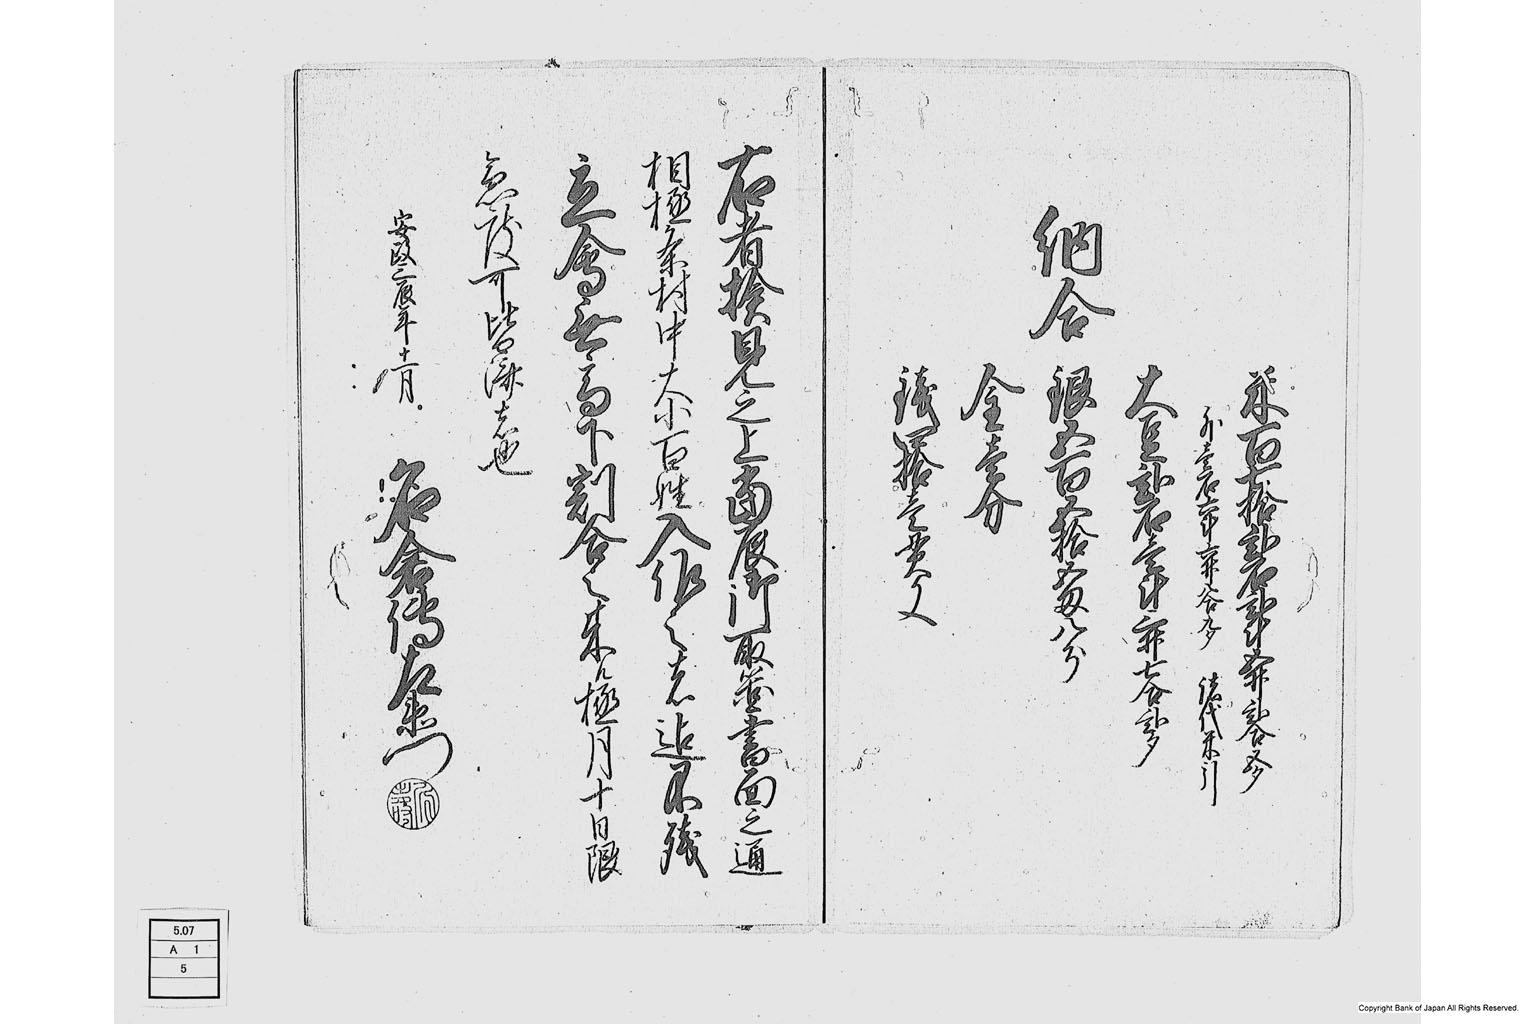 納合
米百七拾弐石弐斗五升弐合五夕
外壱石六斗六升八合九夕 諸代米引
大豆弐石壱斗六升七合弐夕
銀五百五拾五匁八分
金壱分
銭四拾壱貫文
右者検見之上当辰御取箇書面之通
相極条村中大小百姓入作之者迄不残
立會無高下割合之来ル極月十日限
急度可皆済者也
安政三辰年十一月
名倉傳左衛門
5.07
A 1
5
Copyright Bank of Japan All Rights Reserved.